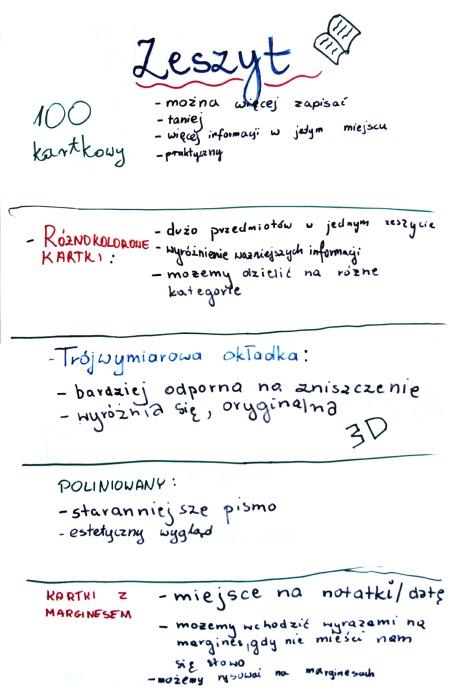 Zeszyt
100
kartkowy
- można więcej zapisać
- taniej
- więcej informacji w jednym miejscu
- praktyczny
- RÓŻNOKOLOROWE
KARTKI:
- dużo przedmiotów w jednym zeszycie
- wyróżnienie ważniejszych informacji
- możemy dzielić na różne
kategorie
- Trójwymiarowa okładka:
- bardziej odporna na zniszczenie
- wyróżnia się, oryginalna
3D
POLINIOWANY:
- staranniejsze pismo
- estetyczny wygląd
KARTKI Z
MARGINESEM
- miejsce na notatki/datę
- możemy wchodzić wyrazami na
margines, gdy nie mieści nam
się słowo
- możemy rysować na marginesach